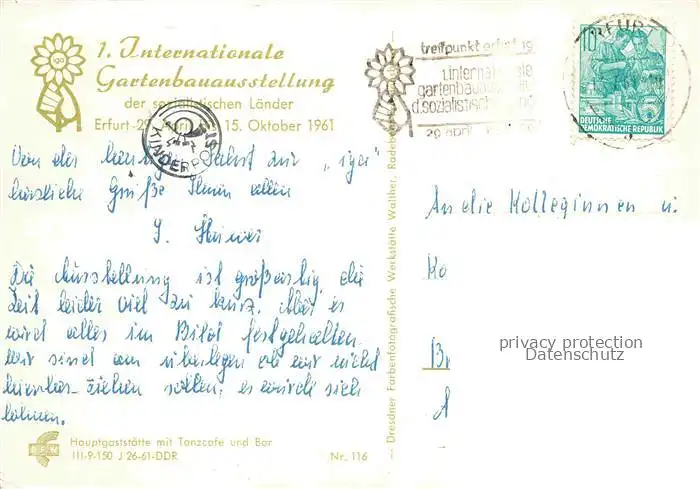 iga
1. Internationale
Gartenbauausstellung
der sozialistischen Länder
Erfurt - 29. April - 15. Oktober 1961
KINDERPOST
treffpunkt erfurt 19
1. internationale
gartenbauausstellung
d. sozialistischen
29. april
ERFURT
10
5
DEUTSCHE
DEMOKRATISCHE REPUBLIK
Von der Fahrt zur "iga"
herzliche Grüße Ihnen allen
Die Ausstellung ist großartig, die
Zeit leider viel zu kurz. Aber es
wird alles im Bild festgehalten.
Wir sind am überlegen ob wir nicht
hierher ziehen sollen, es würde sich
lohnen.
An die Kolleginnen u.
Ko
Br
A
privacy protection
Datenschutz
Dresdner Farbenfotografische Werkstätte Walther, Radebeul
Hauptgaststätte mit Tanzcafe und Bar
III-9-150 J 26-61-DDR
Nr. 116